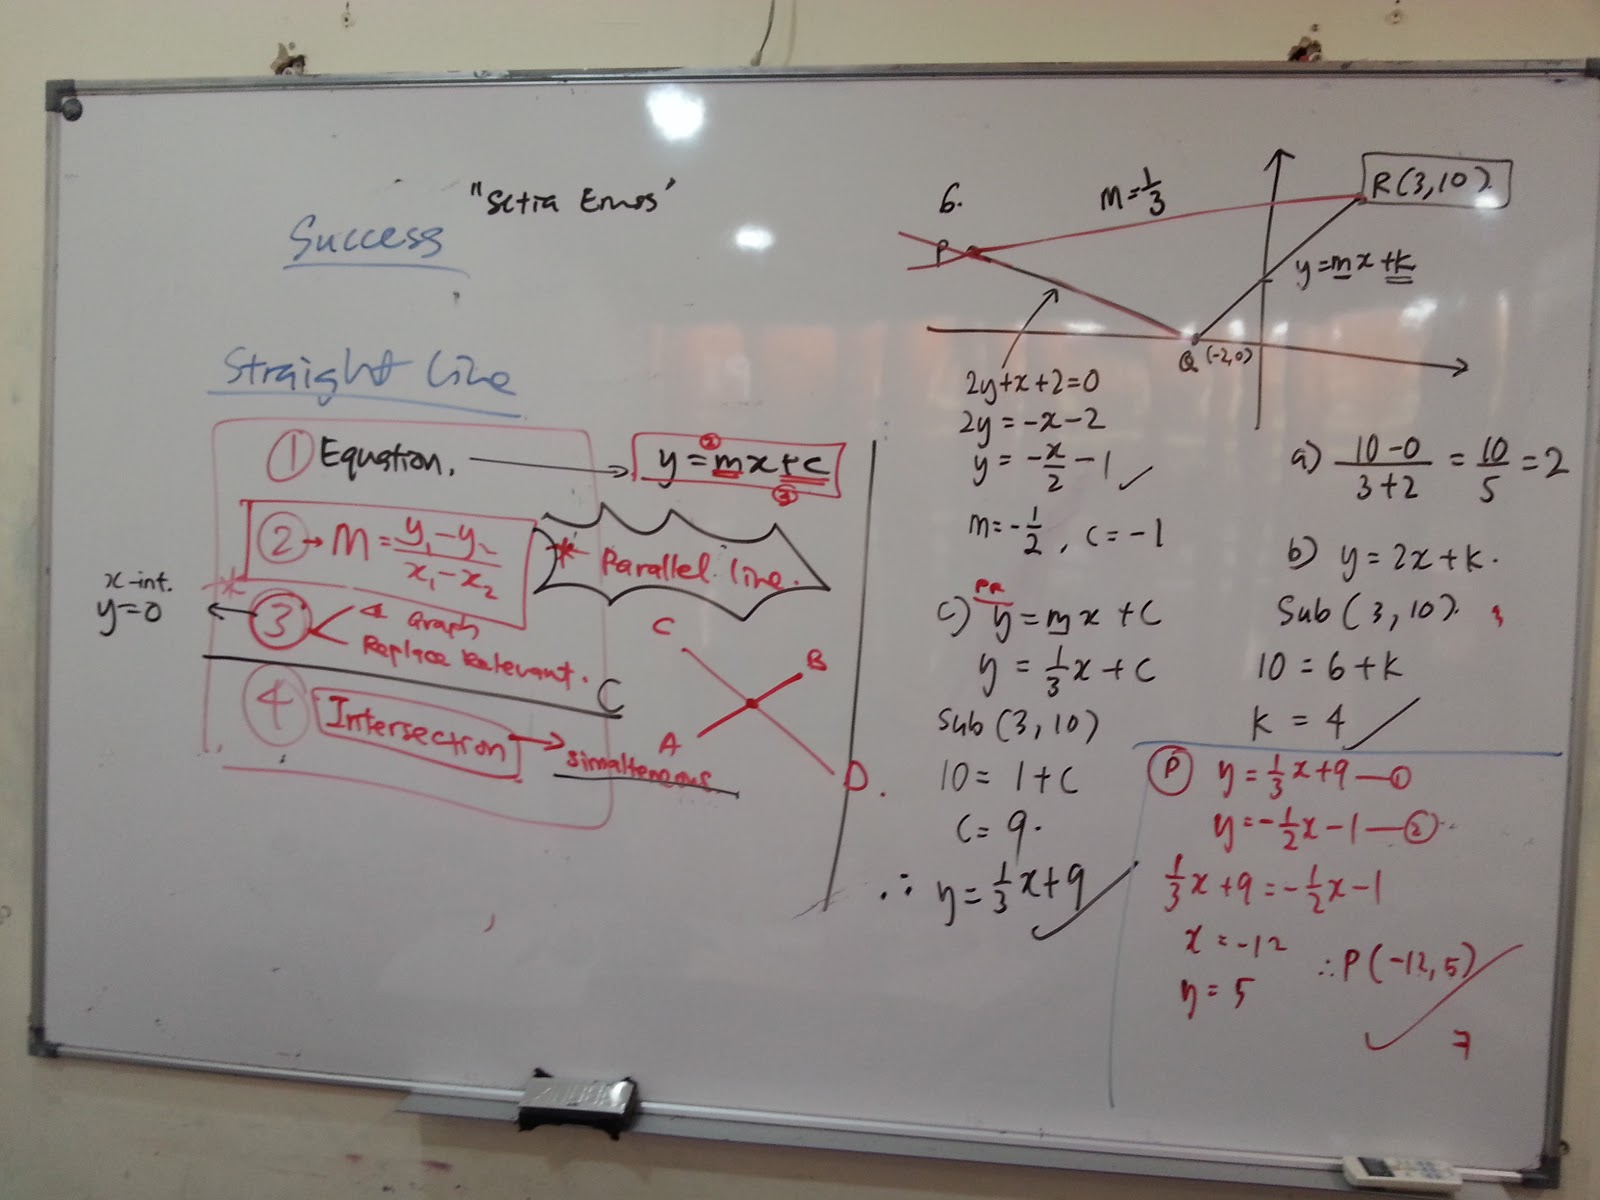 Success
Straight Line
① Equation. → y = mx + c
②
③
② → M = y₁ - y₂ / x₁ - x₂
* Parallel line.
x-int.
y = 0
*
③ Graph
Replace Relevant.
C
④ Intersection → simaltenous
C
B
A
D.
6.
M = 1/3
R(3,10).
P
y = mx + k
Q (-2,0)
2y + x + 2 = 0
2y = -x - 2
y = -x/2 - 1 ✓
m = -1/2 , c = -1
PR
c) y = mx + C
y = 1/3x + C
Sub (3, 10)
10 = 1 + C
C = 9.
∴ y = 1/3x + 9 ✓
a) 10 - 0 / 3 + 2 = 10/5 = 2
b) y = 2x + k.
Sub (3, 10).
10 = 6 + k
k = 4 ✓
Ⓟ y = 1/3x + 9 — ①
y = -1/2x - 1 — ②
1/3x + 9 = -1/2x - 1
x = -12
y = 5
∴ P(-12, 5) ✓
7